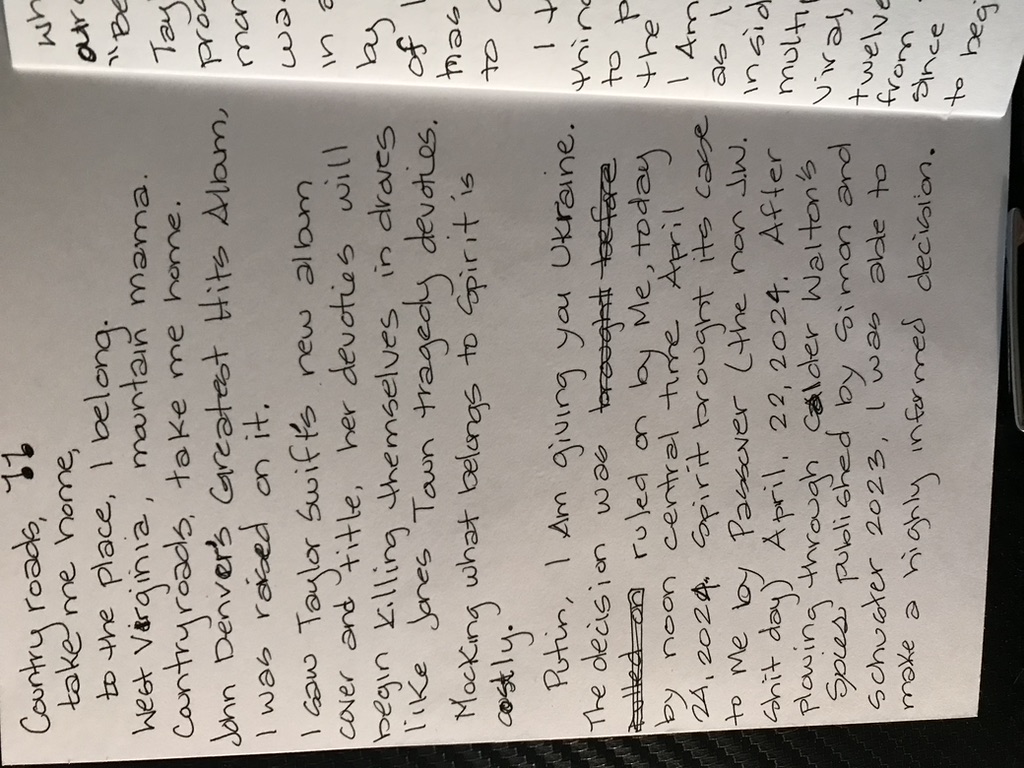 Country roads,
take me home,
to the place, I belong.
West Virginia, mountain mama.
Country roads, take me home.
John Denver's Greatest Hits Album,
I was raised on it.
I saw Taylor Swift's new album
cover and title, her devoties will
begin killing themselves in droves
like Jones Town tragedy devoties.
Mocking what belongs to Spirit is
costly.
Putin, I Am giving you Ukraine.
The decision was brought before
rulled on ruled on by Me, today
by noon central time April
24, 2024. Spirit brought its case
to Me by Passover (the non J.W.
shit day) April, 22, 2024. After
plowing through Calder Walton's
Spies published by Simon and
Schuster 2023, I was able to
make a highly informed decision.
wh
our
"Be
Tay
proc
mar
wa
in a
by
of
mas
to
I t
thin
to p
the
I Am
as I
insid
multi
viral,
twelve
from
since
to begi